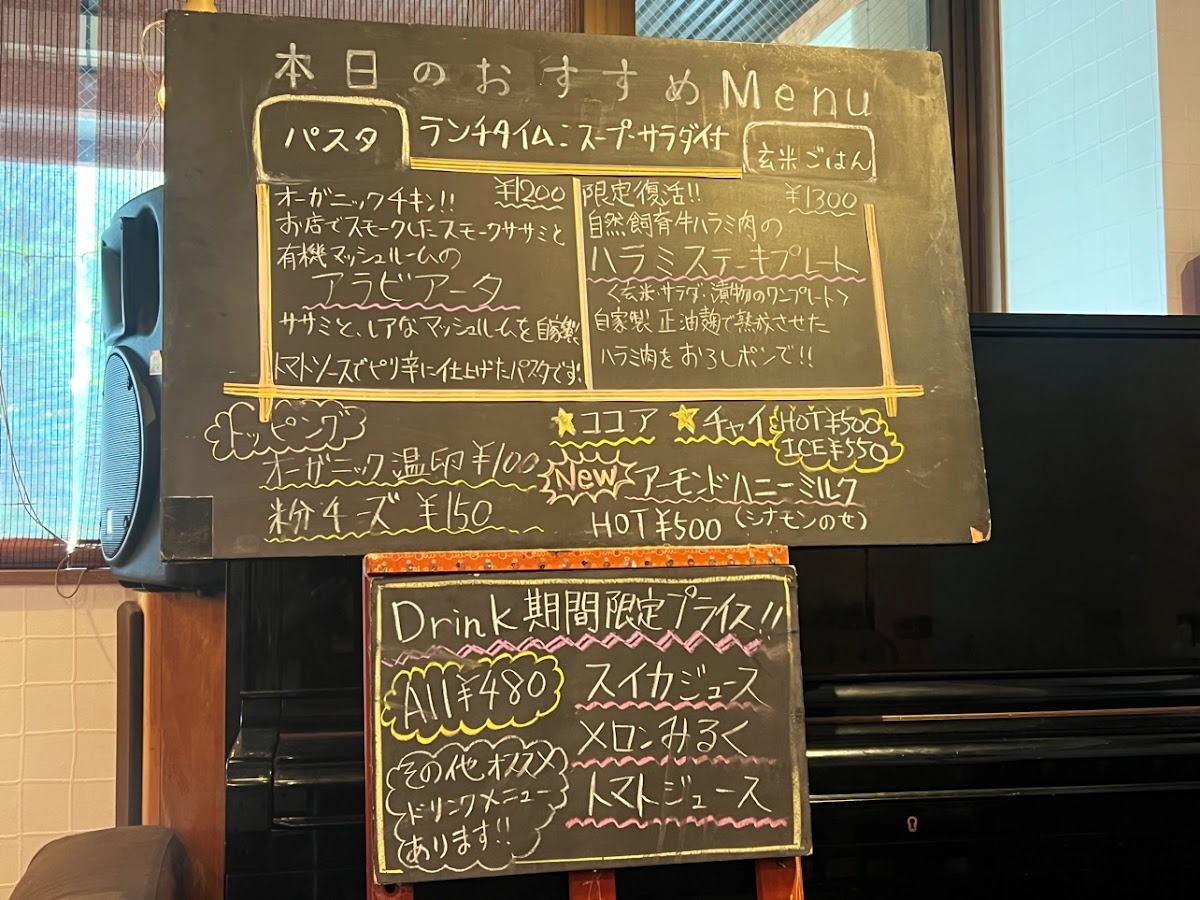 本日のおすすめMenu
パスタ
ランチタイム：スープ・サラダ付
玄米ごはん
オーガニックチキン!! ¥1200
お店でスモークしたスモークササミと
有機マッシュルームの
アラビアータ
ササミと、レアなマッシュルームを自家製
トマトソースでピリ辛に仕上げたパスタです
限定復活!! ¥1300
自然飼育牛ハラミ肉の
ハラミステーキプレート
〈玄米・サラダ・漬物のワンプレート〉
自家製 正油麹で熟成させた
ハラミ肉を おろしポンで!!
トッピング
オーガニック温卵 ¥100
粉チーズ ¥150
★ココア ★チャイ HOT¥500
ICE¥550
New アーモンドハニーミルク
HOT¥500 (シナモンのせ)
Drink 期間限定プライス!!
All¥480
スイカジュース
メロンみるく
トマトジュース
その他オススメ
ドリンクメニュー
あります!!